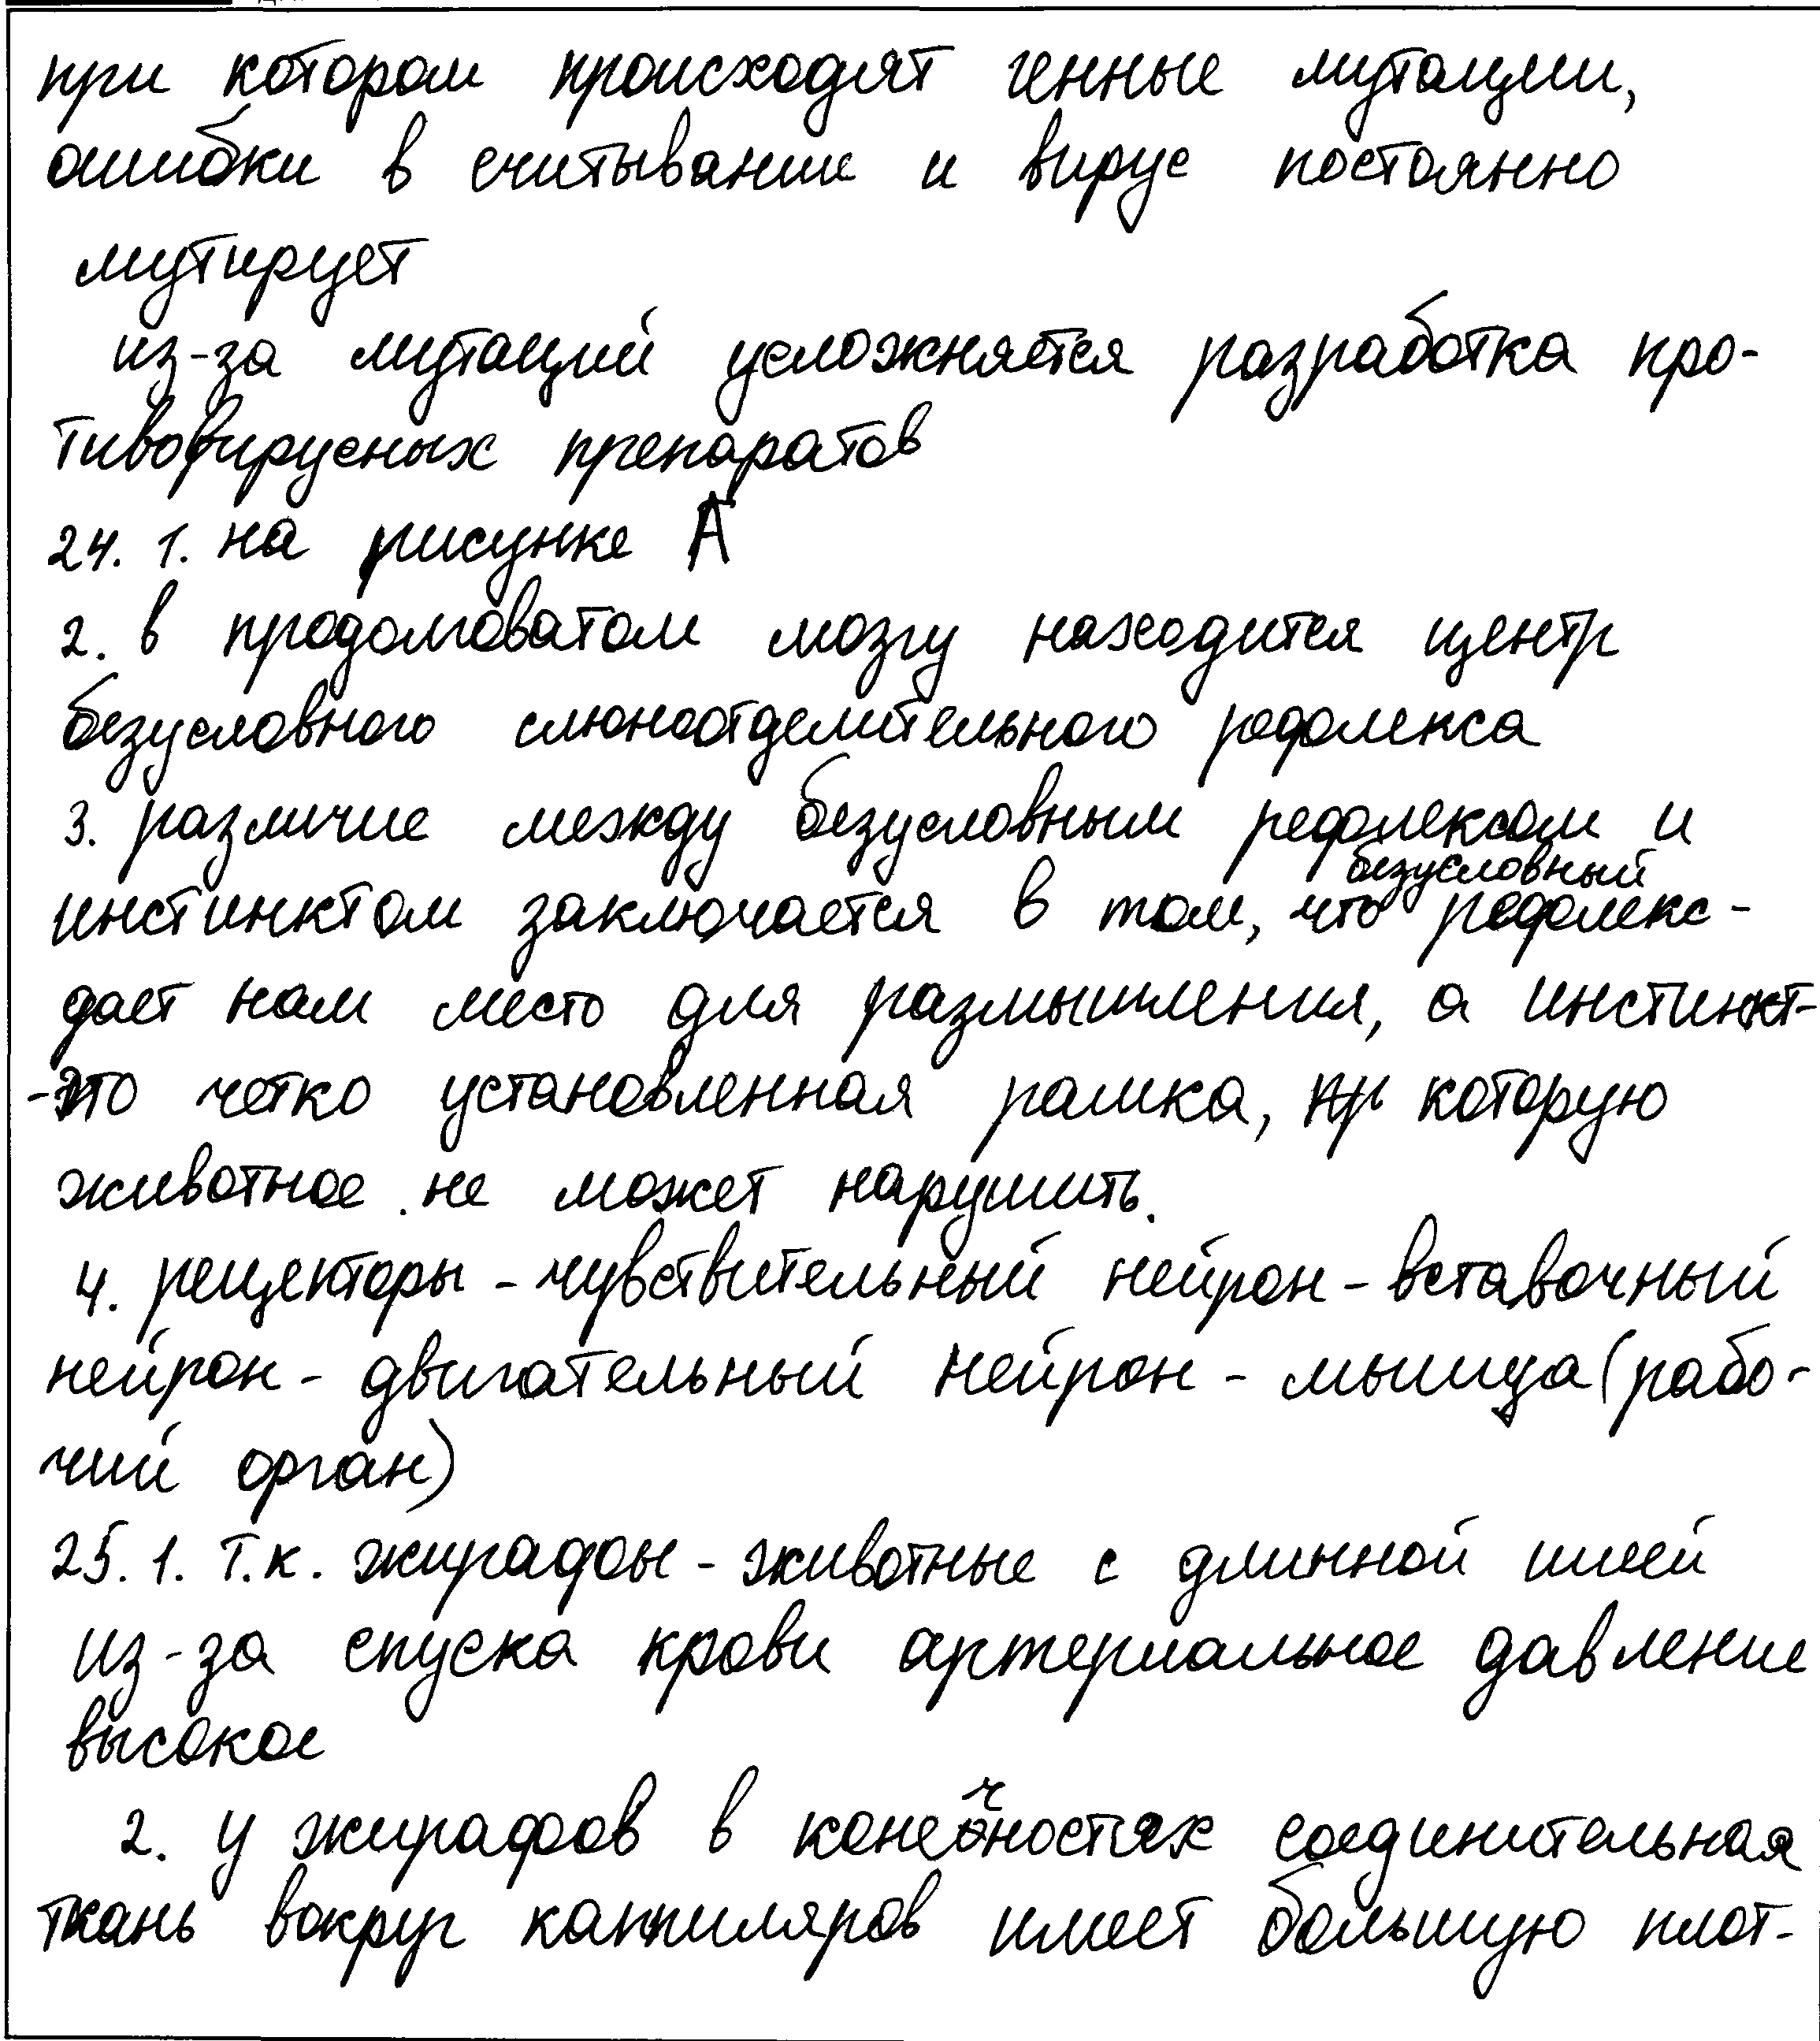 при котором происходят генные мутации,
ошибки в считывание и вирус постоянно
мутирует
из-за мутаций усложняется разработка про-
тивовирусных препаратов
24. 1. на рисунке А
2. в продолговатом мозгу находится центр
безусловного слюноотделительного рефлекса
3. различие между безусловным рефлексом и
инстинктом заключается в том, что безусловный рефлекс -
дает нам место для размышления, а инстинкт-
-это четко установленная рамка, которую
животное не может нарушить.
4. рецекторы - чувствительный нейрон - вставочный
нейрон - двигательный нейрон - мышца (рабо-
чий орган)
25. 1. т.к. жирафы - животные с длинной шеей
из-за спуска крови артериальное давление
высокое
2. у жирафов в конечностях соединительная
ткань вокруг каппиляров имеет большую плот-